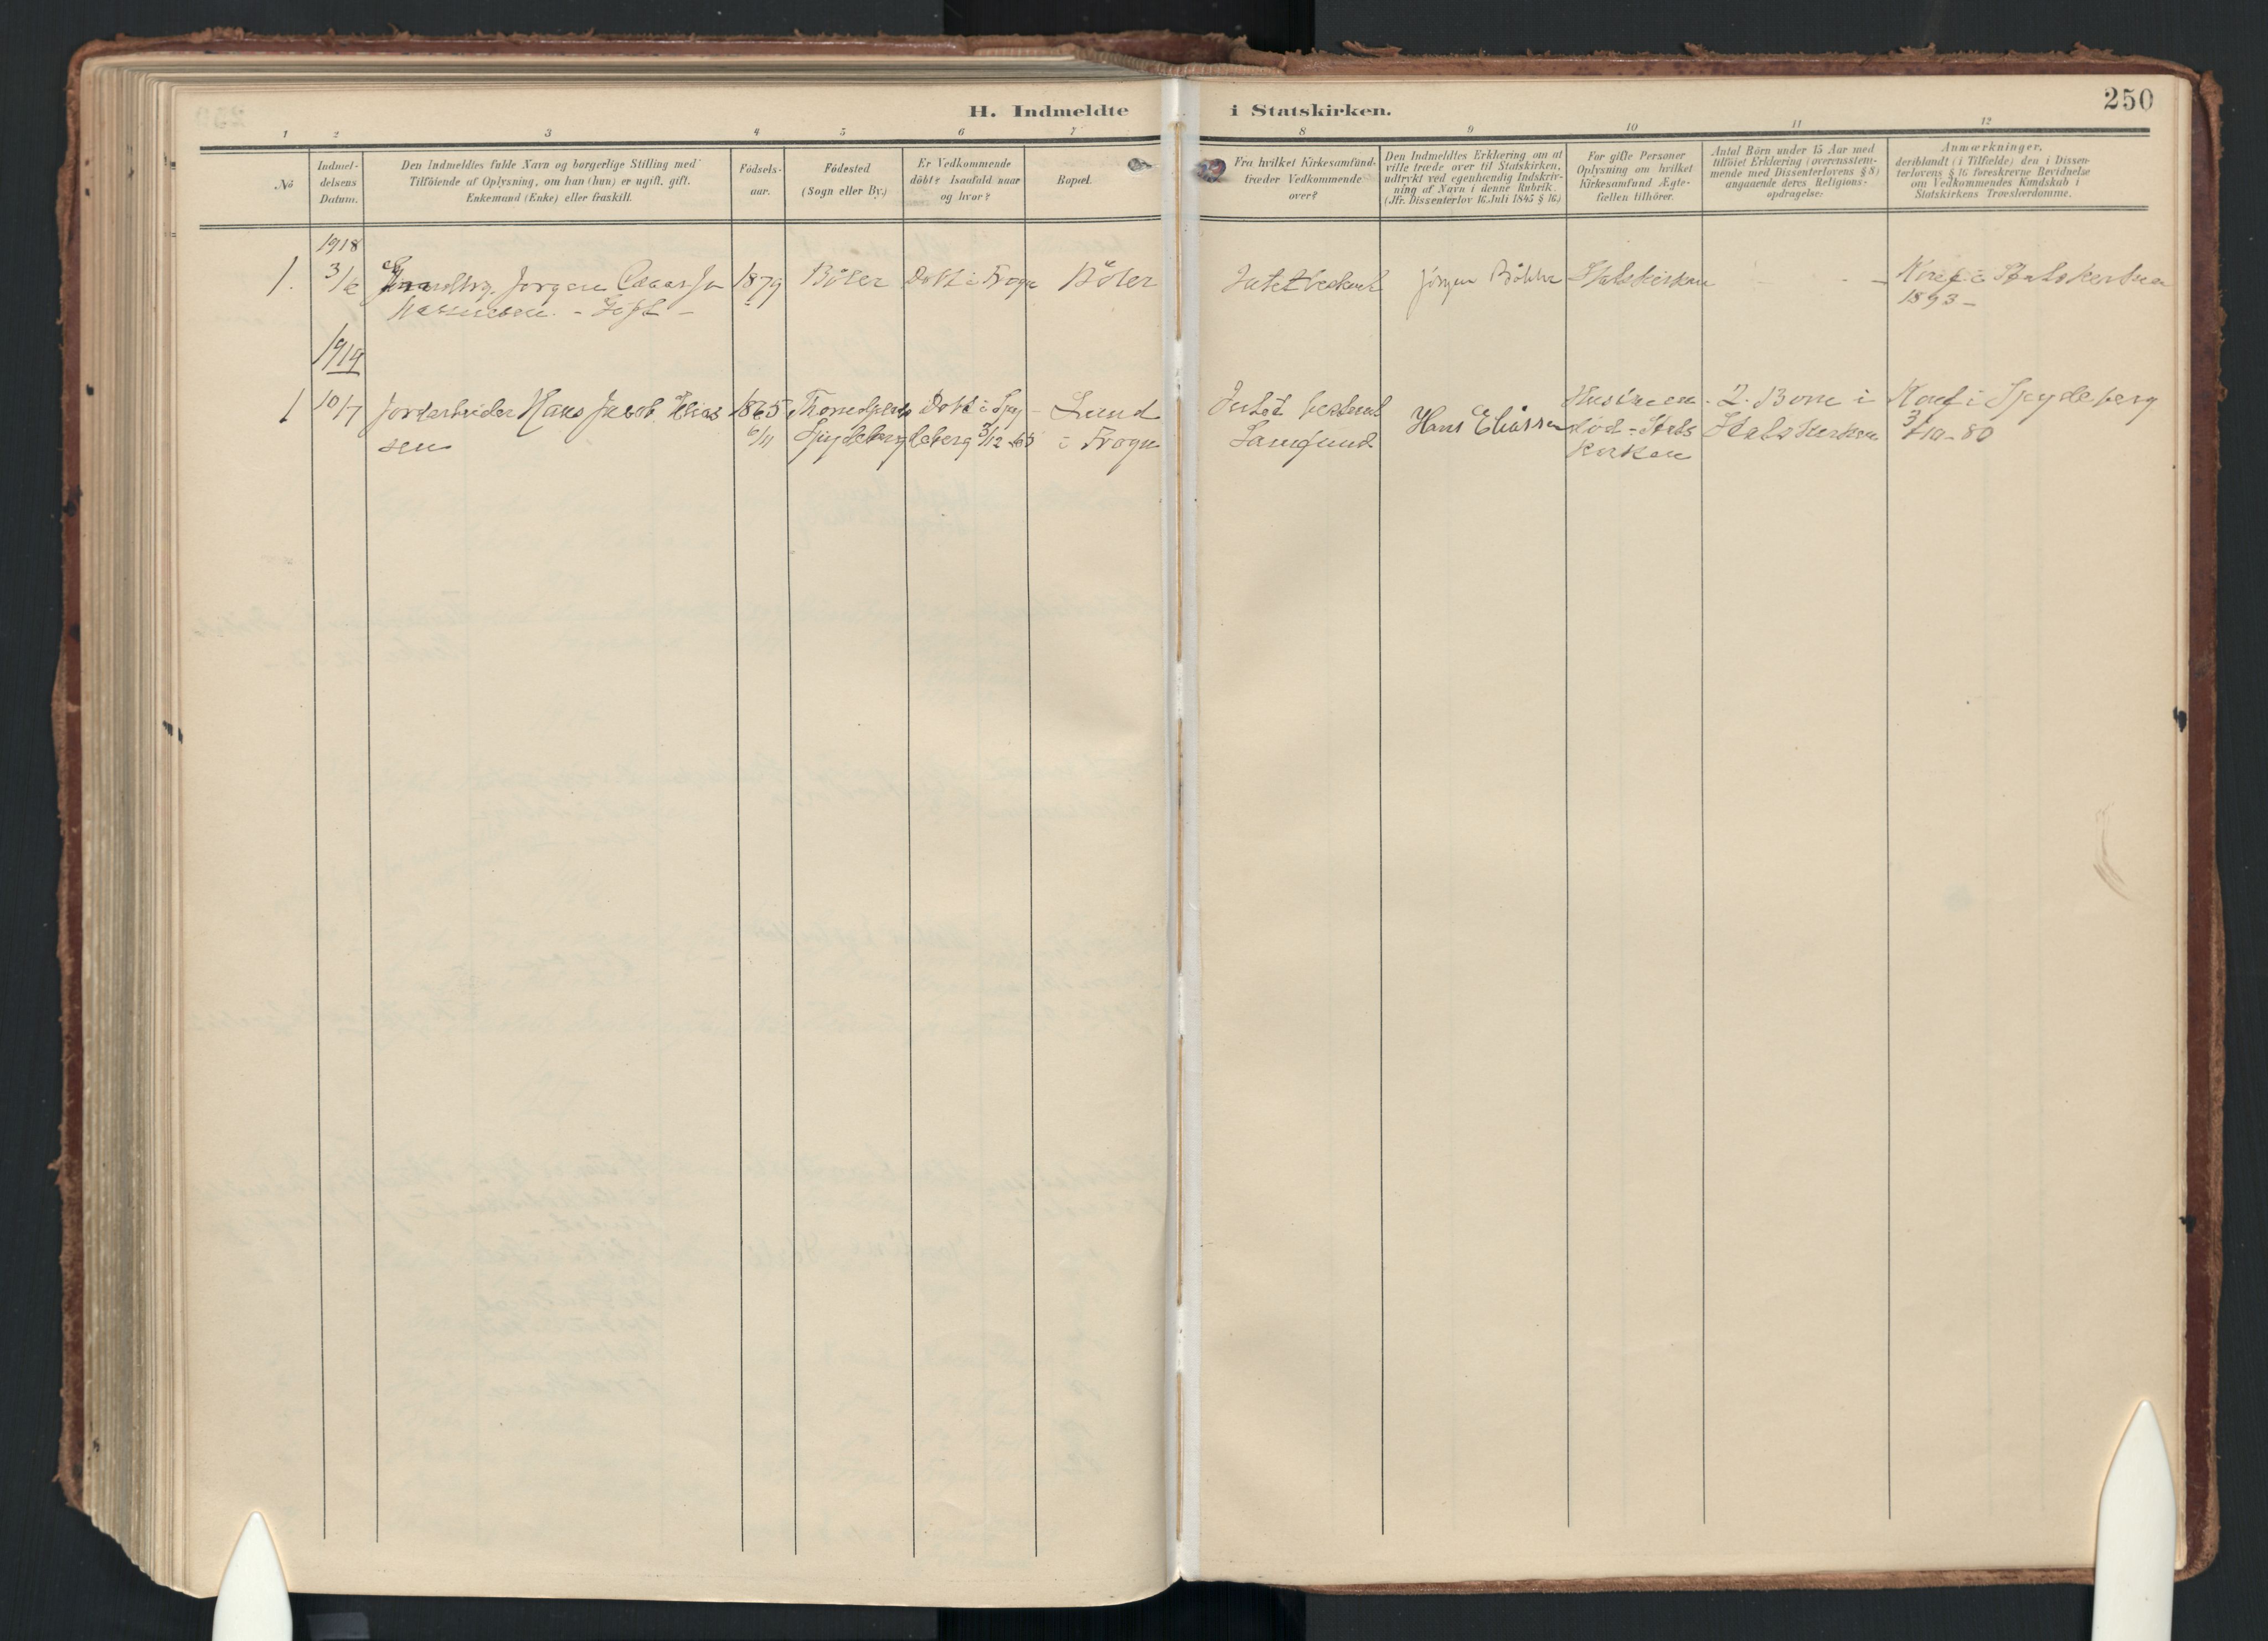 250
H. Indmeldte i Statskirken.
1 2 3 4 5 6 7 8 9 10 11 12
No
Indmel-
delsens
Datum.
Den Indmeldtes fulde Navn og borgerlige Stilling med
Tilföiende af Oplysning, om han (hun) er ugift, gift,
Enkemand (Enke) eller fraskilt.
Födsels-
aar.
Födested
(Sogn eller By.)
Er Vedkommende
döbt? Isaafald naar
og hvor?
Bopæl.
Fra hvilket Kirkesamfund
træder Vedkommende
over?
Den Indmeldtes Erklæring om at
ville træde over til Statskirken,
udtrykt ved egenhændig Indskriv-
ning af Navn i denne Rubrik.
(Jfr. Dissenterlov 16 Juli 1845 § 16.)
For gifte Personer
Oplysning om hvilket
Kirkesamfund Ægte-
fællen tilhörer.
Antal Börn under 15 Aar med
tilföiet Erklæring (overensstem-
mende med Dissenterlovens § 8)
angaaende deres Religions-
opdragelse.
Anmærkninger,
deriblandt (i Tilfælde) den i Dissen-
terlovens § 16 foreskrevne Bevidnelse
om Vedkommendes Kundskab i
Statskirkens Troeslærdomme.
1918
1. 3/6 Jørgen 1879 Böler Döbt i Frogn Böler Intet bestemt Jørgen Statskirken - Konf i Statskirken
- Gift - 1893 -
1919
1 10/7 Jordarbeider Hans Jacob Elias 1865 Döbt i Spy- Lund Intet bestemt Hans Eliassen Hustruen 2 Börn i Konf i Spydeberg
sen 6/11 Spydeberg deberg 3/12 65 i Frogn Samfund död - Stats Statskirken 3/10-80
kirken